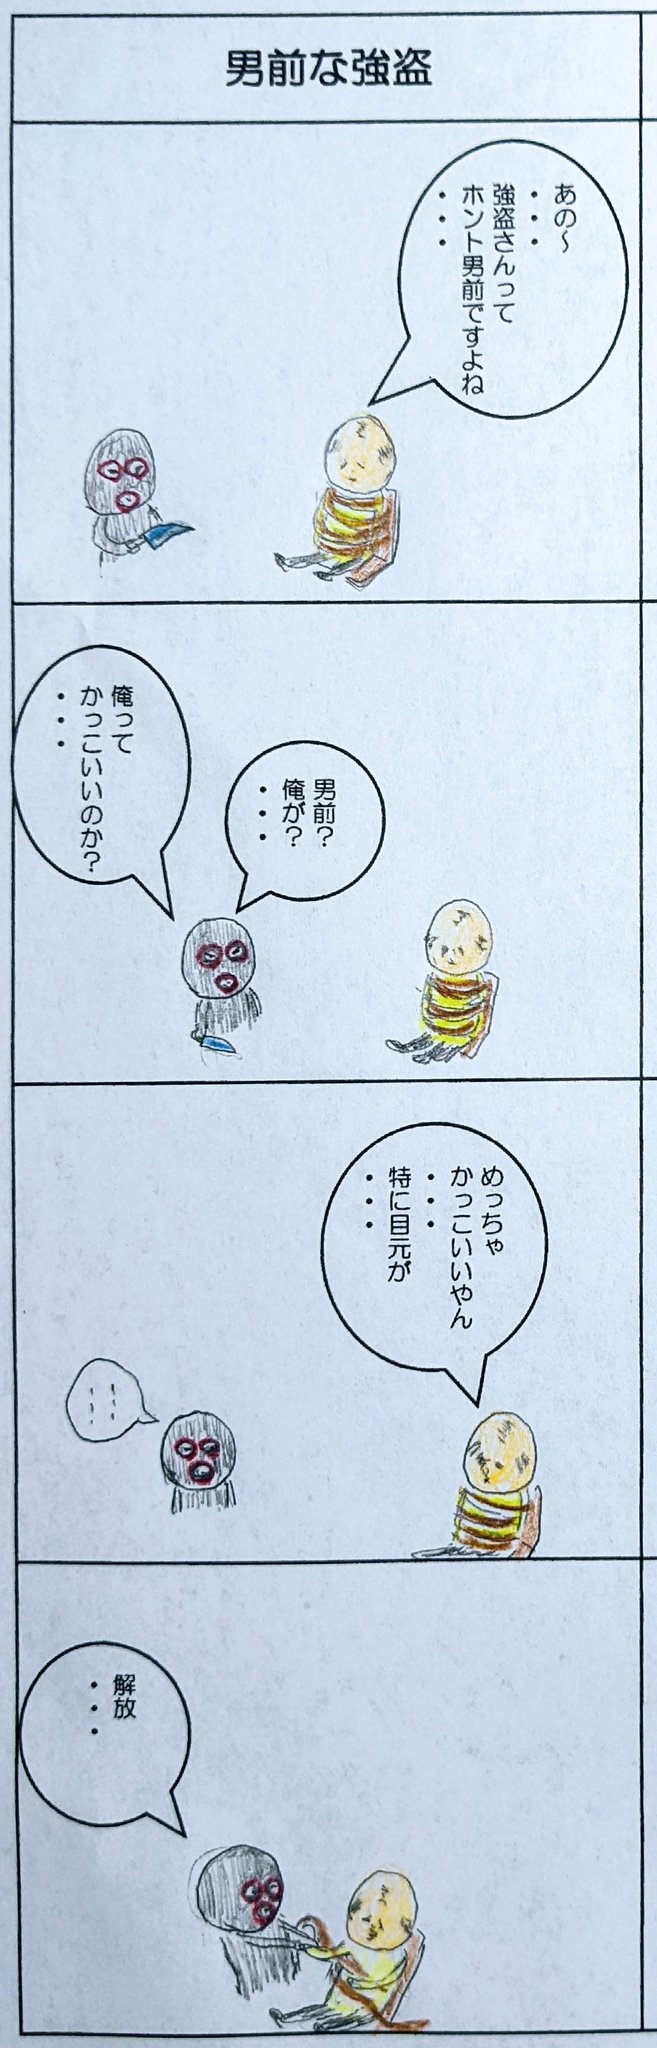 男前な強盗
あの～
・・・
強盗さんって
ホント男前ですよね
・・・
男前？
俺が？
・・・
俺って
かっこいいのか？
・・・
めっちゃ
かっこいいやん
・・・
特に目元が
・・・
・・・
・・・
解放
・・・